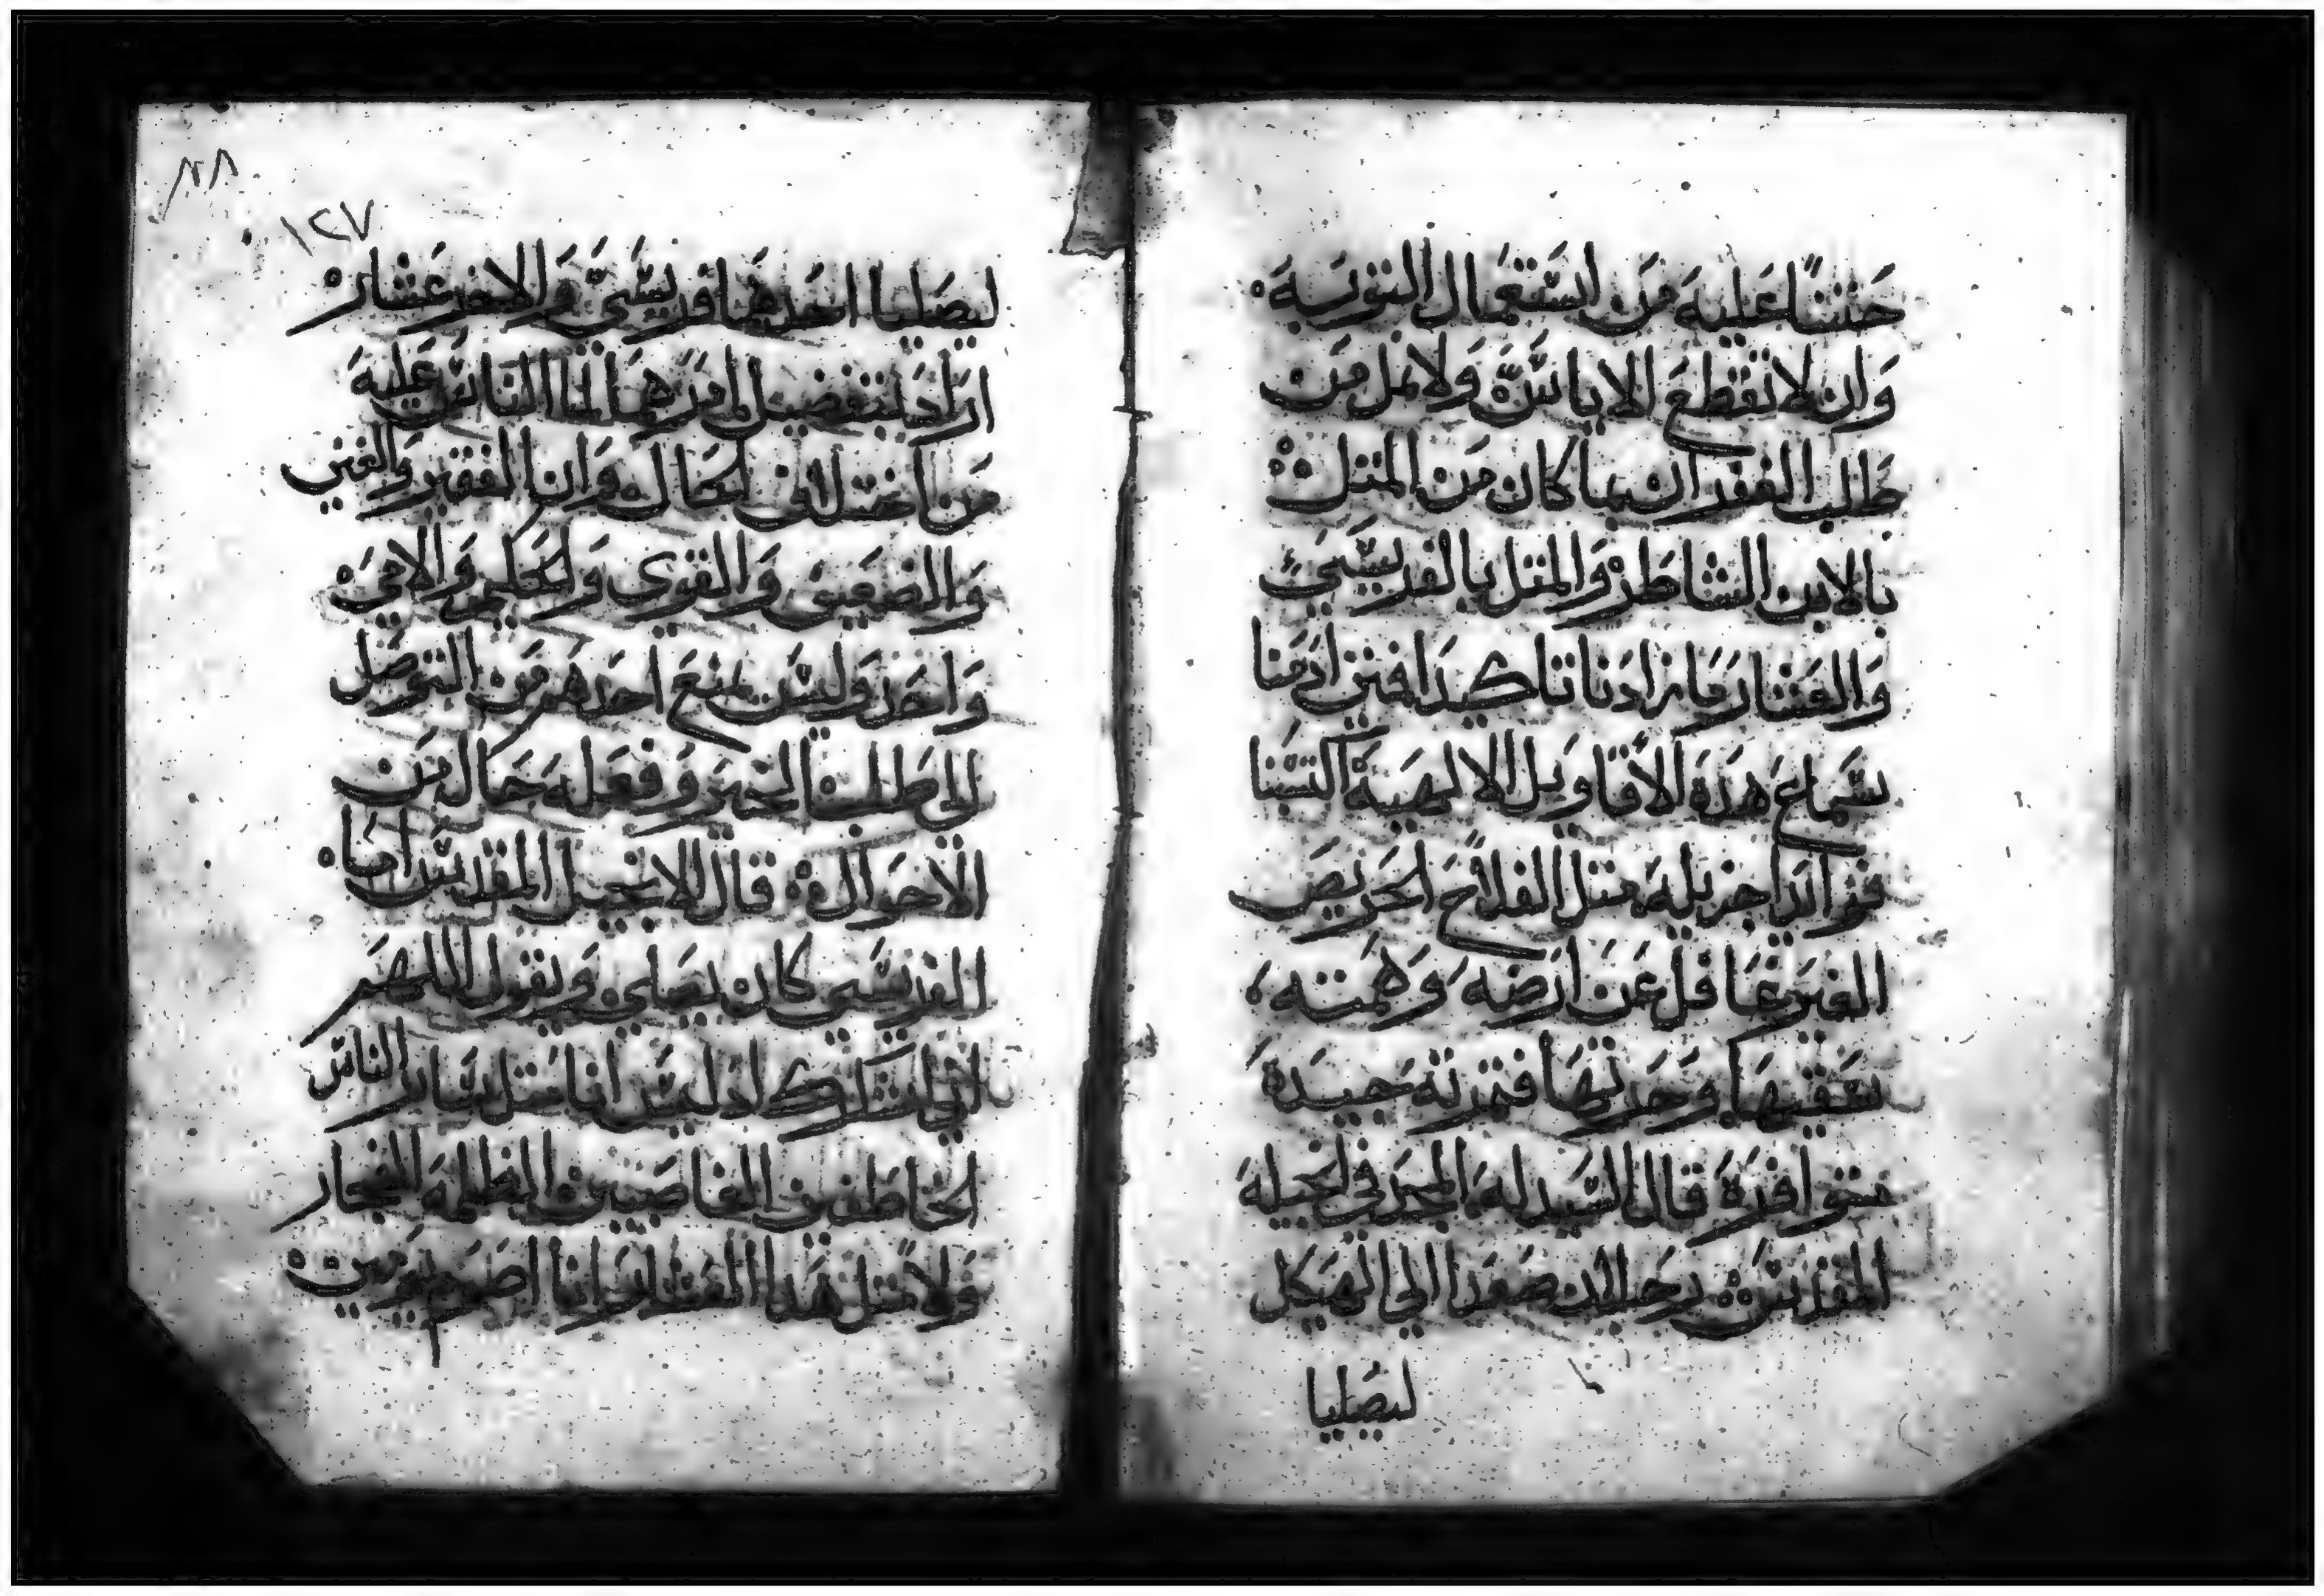 حثنا عليه من استعمال التوبة
وان لا نقطع الاياس ولا نمل من
طلب الغفران بما كان من المثل
بالابن الشاطر والمثل بالفريسي
والعشار وما زادنا تاكيدا فمتى ادمنا
سماع هذه الأقاويل الالهية اكتسبنا
فوائد اجزيله مثل الفلاح الحريص
الغير غافل عن ارضه وهمته
سقيها وحرثها فثمرته جيدة
متوافرة قال السيد له المجد في انجيله
المقدس رجلان صعدا الى الهيكل
ليصليا
١٢٧
ليصليا احدهما فريسي والاخر عشار
اراد بتفضيل امرهما لنا الناس عليه
من اختلاف الحال وان الفقير والغني
والضعيف والقوي والحكيم والامي
واحد وليس يمنع احدهم من التوصل
الى طلب الخير وفعله حال من
الاحوال قال الانجيل المقدس اما
الفريسي كان يصلي ويقول اللهم
اني اشكرك اذ ليس انا مثل ساير الناس
الخاطفين الغاصبين الظلمه الفجار
ولا مثل هذا العشار وانا اصوم يومين